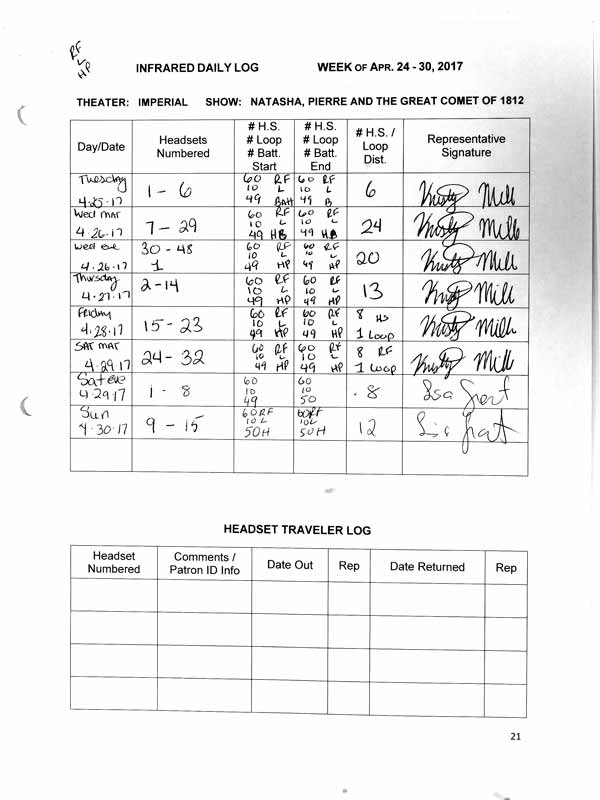 RF
L
HP
INFRARED DAILY LOG WEEK OF APR. 24 - 30, 2017
THEATER: IMPERIAL SHOW: NATASHA, PIERRE AND THE GREAT COMET OF 1812
Day/Date Headsets Numbered # H.S. # Loop # Batt. Start # H.S. # Loop # Batt. End # H.S. / Loop Dist. Representative Signature
Tuesday 4.25.17 1 - 6 60 RF 10 L 49 BAtt 60 RF 10 L 49 B 6 Kristy Mill
Wed mat 4.26.17 7 - 29 60 RF 10 L 49 HB 60 RF 10 L 49 HB 24 Kristy Mill
Wed eve 4.26.17 30 - 48 1 60 RF 10 L 49 HP 60 RF 10 L 49 HP 20 Kristy Mill
Thursday 4.27.17 2 - 14 60 RF 10 L 49 HP 60 RF 10 L 49 HP 13 Kristy Mill
FRiday 4.28.17 15 - 23 60 RF 10 L 49 HP 60 RF 10 L 49 HP 8 HS 1 Loop Kristy Mill
SAT MAT 4.29.17 24 - 32 60 RF 10 L 49 HP 60 RF 10 L 49 HP 8 RF 1 Loop Kristy Mill
Sat eve 4.29.17 1 - 8 60 10 49 60 10 50 8 Lisa
Sun 4.30.17 9 - 15 60RF 10L 50H 60RF 10L 50H 12
HEADSET TRAVELER LOG
Headset Numbered Comments / Patron ID Info Date Out Rep Date Returned Rep
21